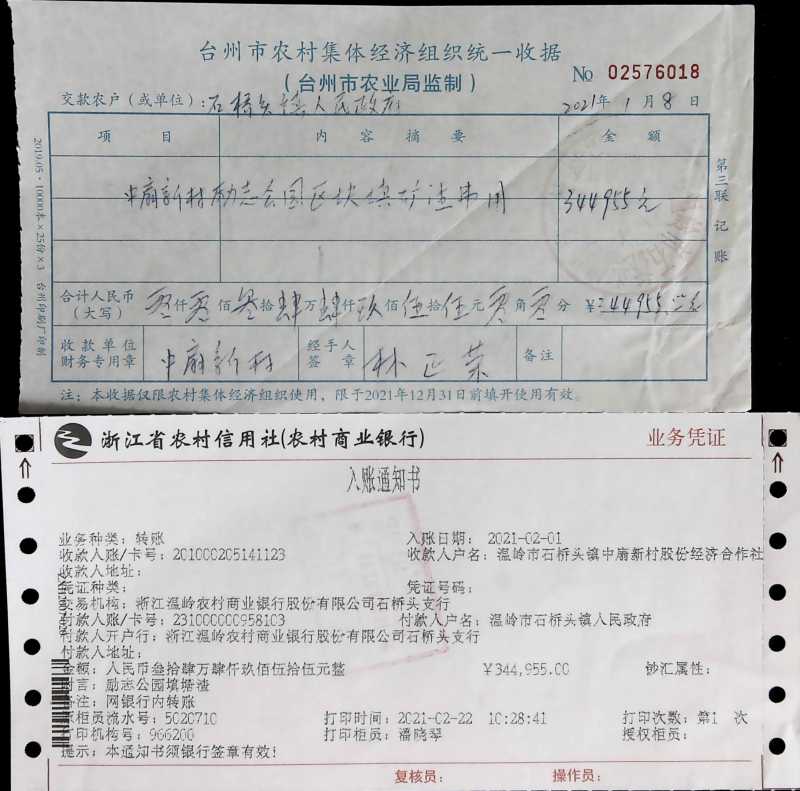 台州市农村集体经济组织统一收据
(台州市农业局监制)
No 02576018
交款农户(或单位):石桥头镇人民政府
2021年 1月 8日
项 目 内 容 摘 要 金 额
中扇新村励志公园区块填 渣费用 344955元
合计人民币(大写) 零仟零佰叁拾肆万肆仟玖佰伍拾伍元零角零分 ¥344955元
收款单位财务专用章 中扇新村 经手人签章 林正荣 备注
注:本收据仅限农村集体经济组织使用,限于2021年12月31日前填开使用有效。
第三联 记账
2019.05·10000本×25份×3 台州印刷厂印制
浙江省农村信用社(农村商业银行) 业务凭证
入账通知书
业务种类: 转账 入账日期: 2021-02-01
收款人账/卡号: 201000205141123 收款人户名: 温岭市石桥头镇中扇新村股份经济合作社
收款人地址:
凭证种类: 凭证号码:
交易机构: 浙江温岭农村商业银行股份有限公司石桥头支行
付款人账/卡号: 231000000958103 付款人户名: 温岭市石桥头镇人民政府
付款人开户行: 浙江温岭农村商业银行股份有限公司石桥头支行
付款人地址:
金额: 人民币叁拾肆万肆仟玖佰伍拾伍元整 ¥344,955.00 钞汇属性:
附言: 励志公园填塘渣
备注: 网银行内转账
原柜员流水号: 5020710 打印时间: 2021-02-22 10:28:41 打印次数: 第1 次
打印机构号: 966200 打印柜员: 潘晓翠 授权柜员:
提示: 本通知书须银行签章有效!
复核员: 操作员: